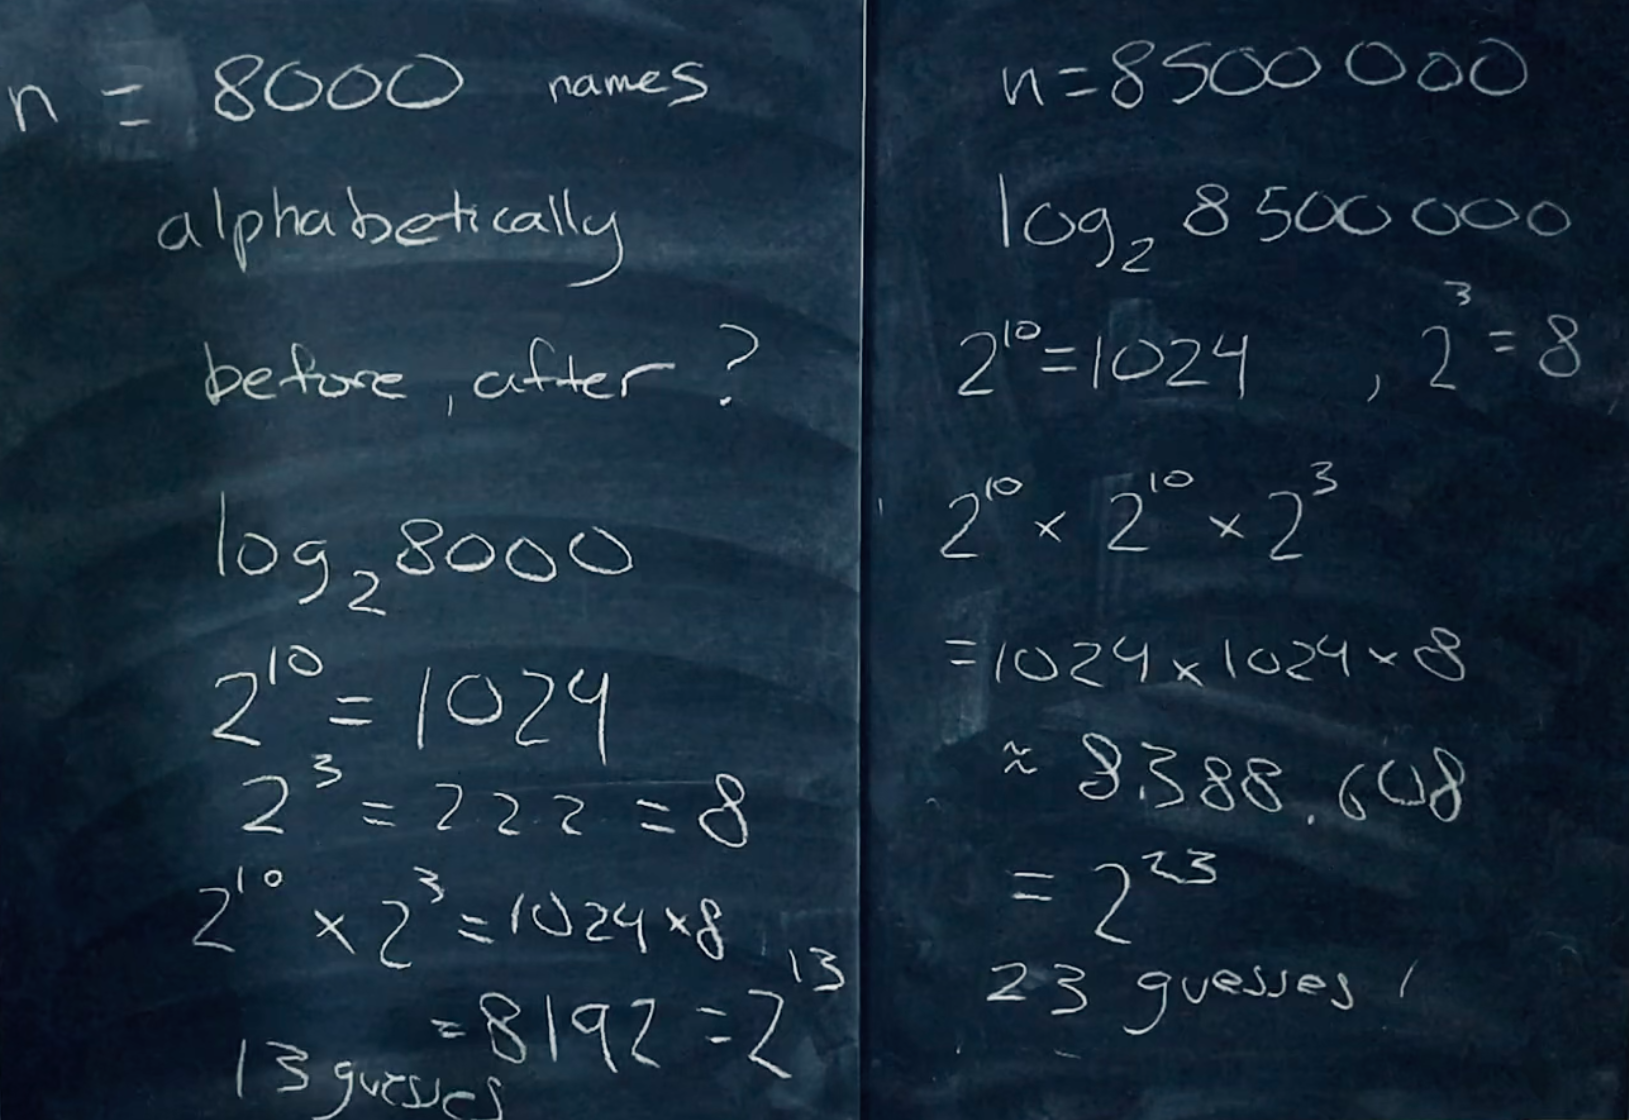 n = 8000 names
alphabetically
before, after ?
log₂ 8000
2¹⁰ = 1024
2³ = 2 2 2 = 8
2¹⁰ × 2³ = 1024 × 8
= 8192 = 2¹³
13 guesses
n = 8500 000
log₂ 8 500 000
2¹⁰ = 1024 , 2³ = 8
2¹⁰ × 2¹⁰ × 2³
= 1024 × 1024 × 8
≈ 8.388.608
= 2²³
23 guesses